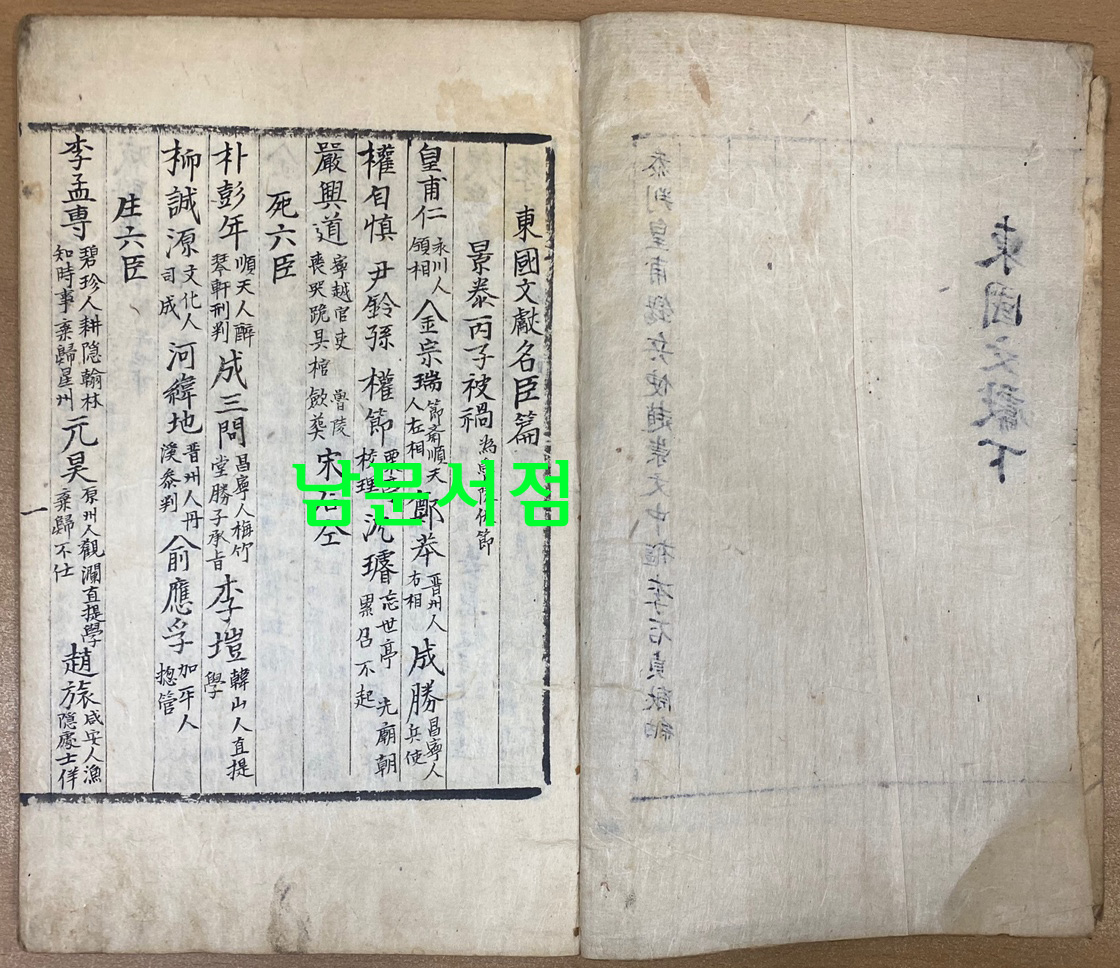 東國文獻下
東國文獻名臣篇
景泰丙子被禍 為伏節
皇甫仁 永川人領相 金宗瑞 節齋順天人左相 鄭苯 晋州人右相 成勝 昌寧人兵使
權自愼 尹鈴孫 權節 校理 沈璿 忘世亭 先廟朝累召不起
嚴興道 寧越官吏 魯陵喪哭跪具棺斂葬 宋石仝
死六臣
朴彭年 順天人醉琴軒刑判 成三問 昌寧人梅竹堂勝子承旨 李塏 韓山人直提學
柳誠源 文化人司成 河緯地 晋州人丹溪叅判 俞應孚 加平人摠管
生六臣
李孟專 碧珍人耕隱翰林知時事棄歸星州 元昊 原州人觀瀾直提學棄歸不仕 趙旅 咸安人漁隱處士佯
一
남문서점